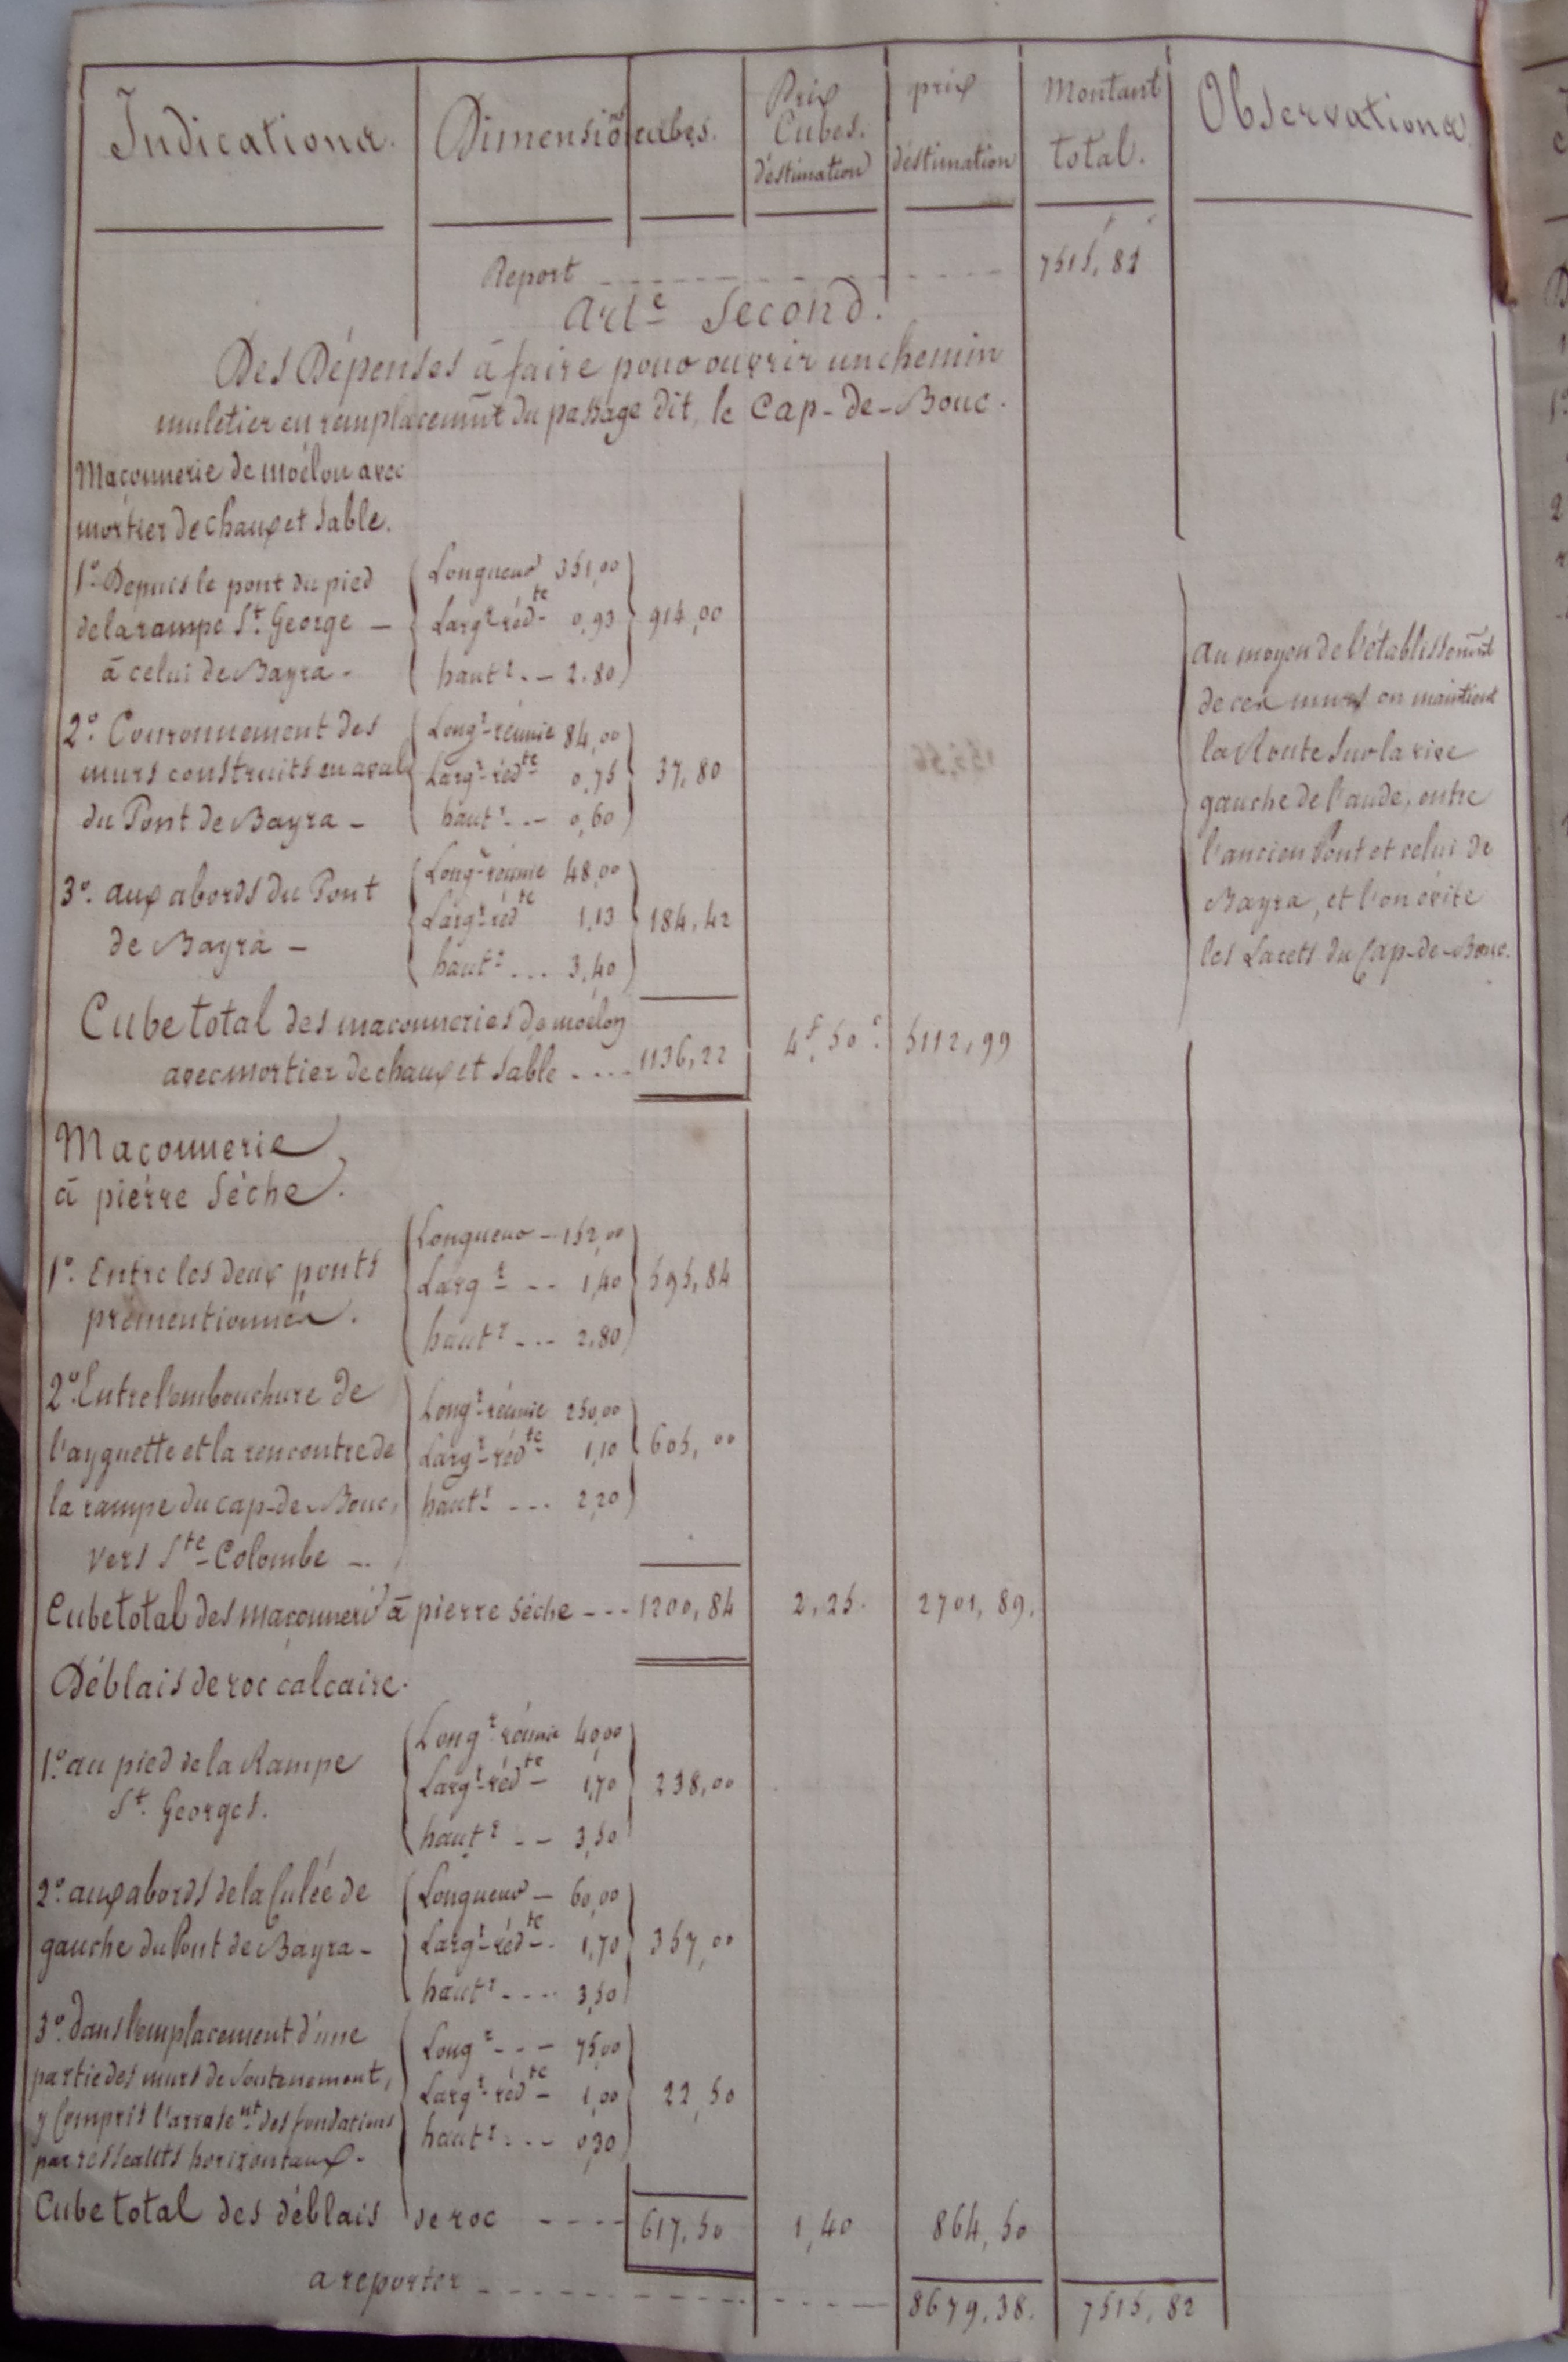 Indications. Dimensions cubes. Prix Cubes. d'éstimation prix d'éstimation Montant total. Observations
Report 7515,82
Art.e Second.
Des Dépenses à faire pour ouvrir un chemin
muletier en remplacemt du passage dit, le Cap-de-Bouc.
Maçonnerie de moëlon avec
mortier de chaux et sable.
1.o Depuis le pont du pied
de la rampe St. George —
à celui de Bayra -
Longueur 351,00
Largr réd.te 0,93
hautr. — 2.80
914,00
2.o Couronnement des
murs construits en aval
du Pont de Bayra —
Longr réunie 84,00
Largr réd.te 0,75
hautr. - — 0,60
37,80
3.o aux abords du Pont
de Bayra —
Longr réunie 48,00
Largr réd.te 1,13
hautr ... 3,40
184,42
Cube total des maconneries de moëlon
avec mortier de chaux et sable .... 1136,22 4f,50c. 5112,99
au moyen de l'établissemt
de ces murs on maintient
la Route sur la rive
gauche de l'aude, entre
l'ancien Pont et celui de
Bayra, et l'on évite
les Lacets du Cap-de-Bouc.
Maçonnerie
à pierre Séche.
1.o Entre les deux ponts
prémentionnés.
Longueur — 152,00
Largr - - 1,40
hautr - - - 2.80
595,84
2.o Entre l'embouchure de
l'ayguette et la rencontre de
la rampe du cap-de-Bouc,
vers Ste Colombe —.
Longr réunie 250,00
Largr réd.te 1,10
hautr - - - 2,20
605,00
Cube total des maçonneris à pierre séche - - - 1200,84 2,25. 2701,89.
Déblais de roc calcaire.
1.o au pied de la Rampe
St. Georges.
Longr réunie 40,00
Largr réd.te — 1,70
hautr - — 3,50
238,00
2.o aux abords de la Culée de
gauche du Pont de Bayra -
Longueur — 60,00
Largr réd.te - 1,70
hautr - - - - 3,50
357,00
3.o dans l'emplacement d'une
partie des murs de Soutenement,
y Compris l'arrasent des fondations
par ressauts horizontaux.
Longr - - — 75,00
Largr réd.te — 1,00
hautr - - — 0,30
22,50
Cube total des déblais de roc - - - - 617,50 1,40 864,50
a reporter 8679,38. 7515,82